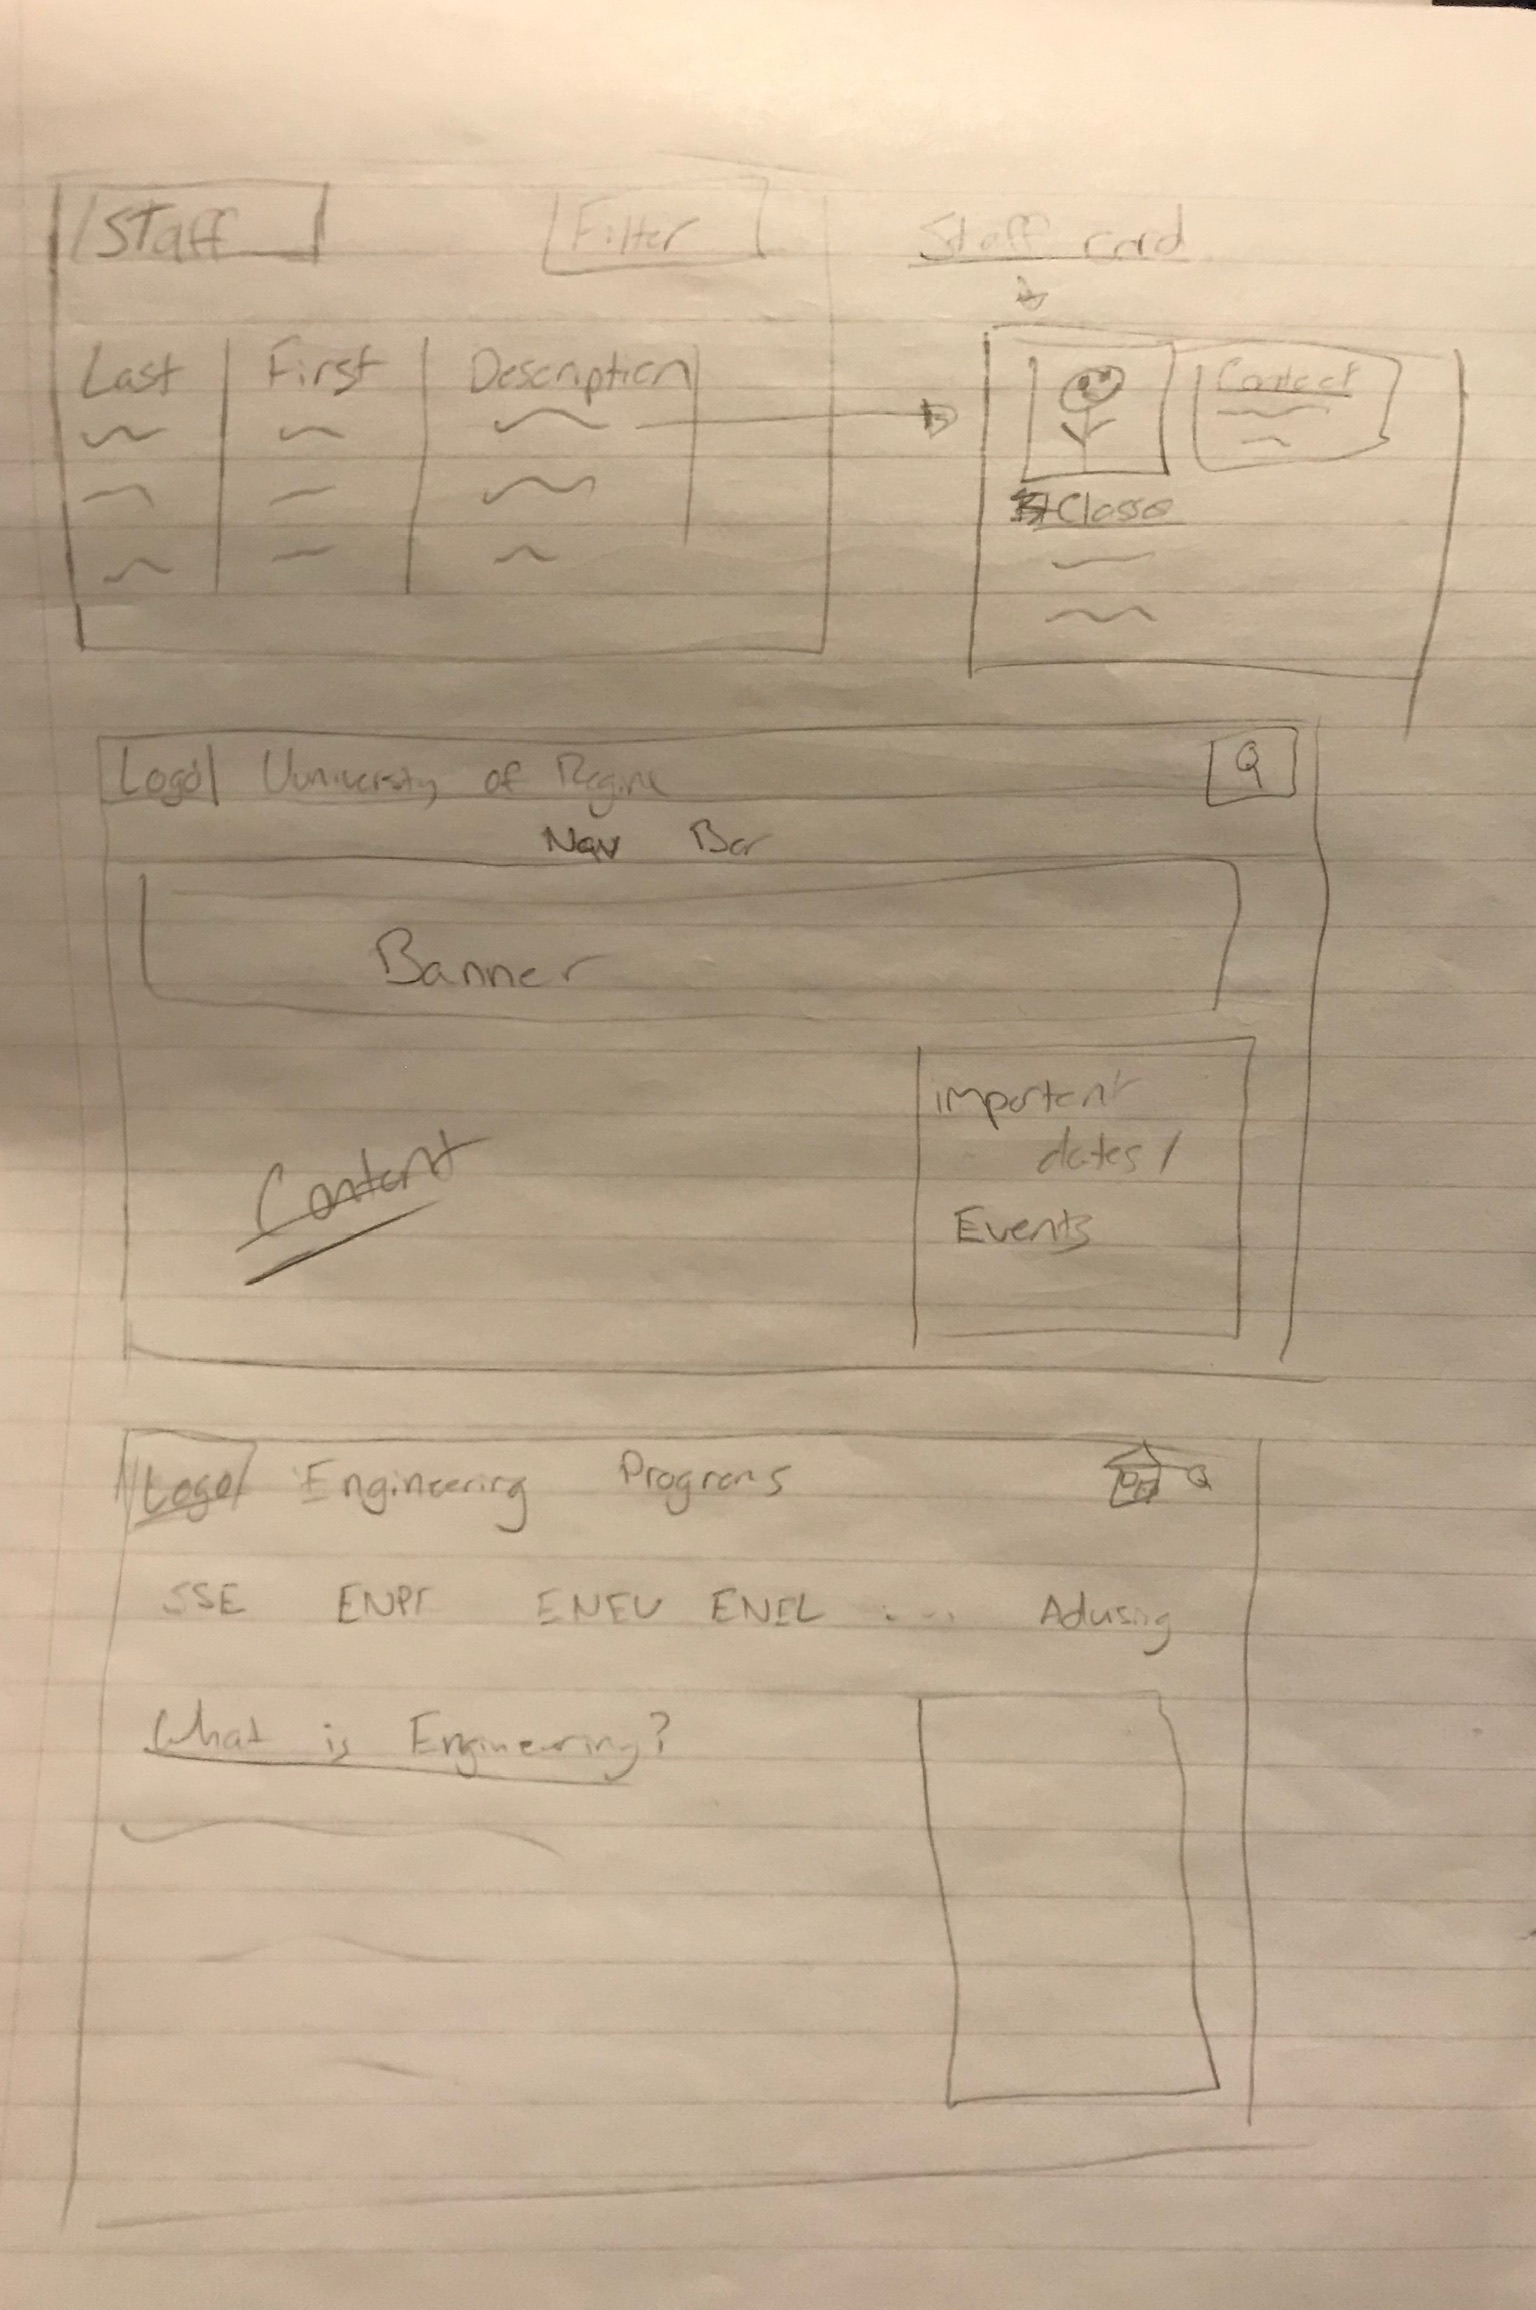 Staff
Filter
Staff card
Last First Description
Contact
Classe
Logo University of Regina
Q
Nav Bar
Banner
important
dates /
Events
Content
Logo Engineering Programs
Q
SSE ENPE ENEV ENEL .... Advising
What is Engineering?